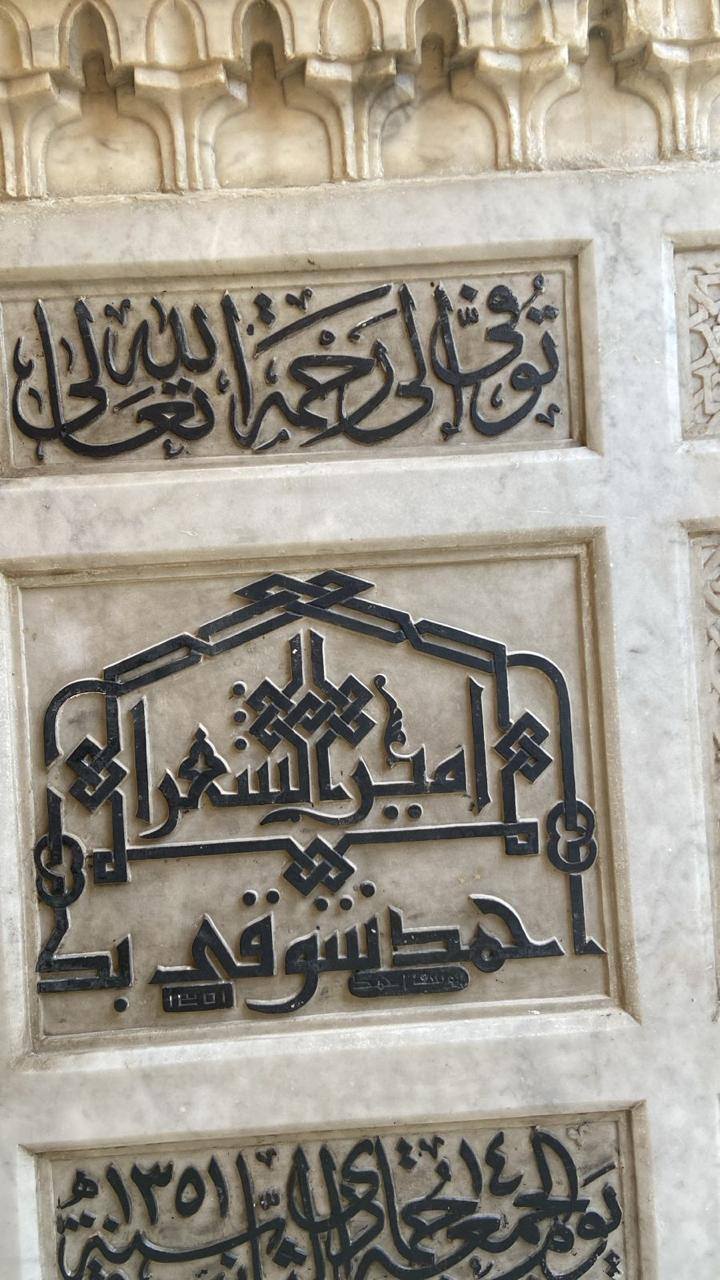 توفى إلى رحمة الله تعالى
امير الشعراء
احمد شوقي بك
يوسف احمد
١٣٥١
يوم الجمعة ١٤ جمادى الثانية سنة ١٣٥١ هـ